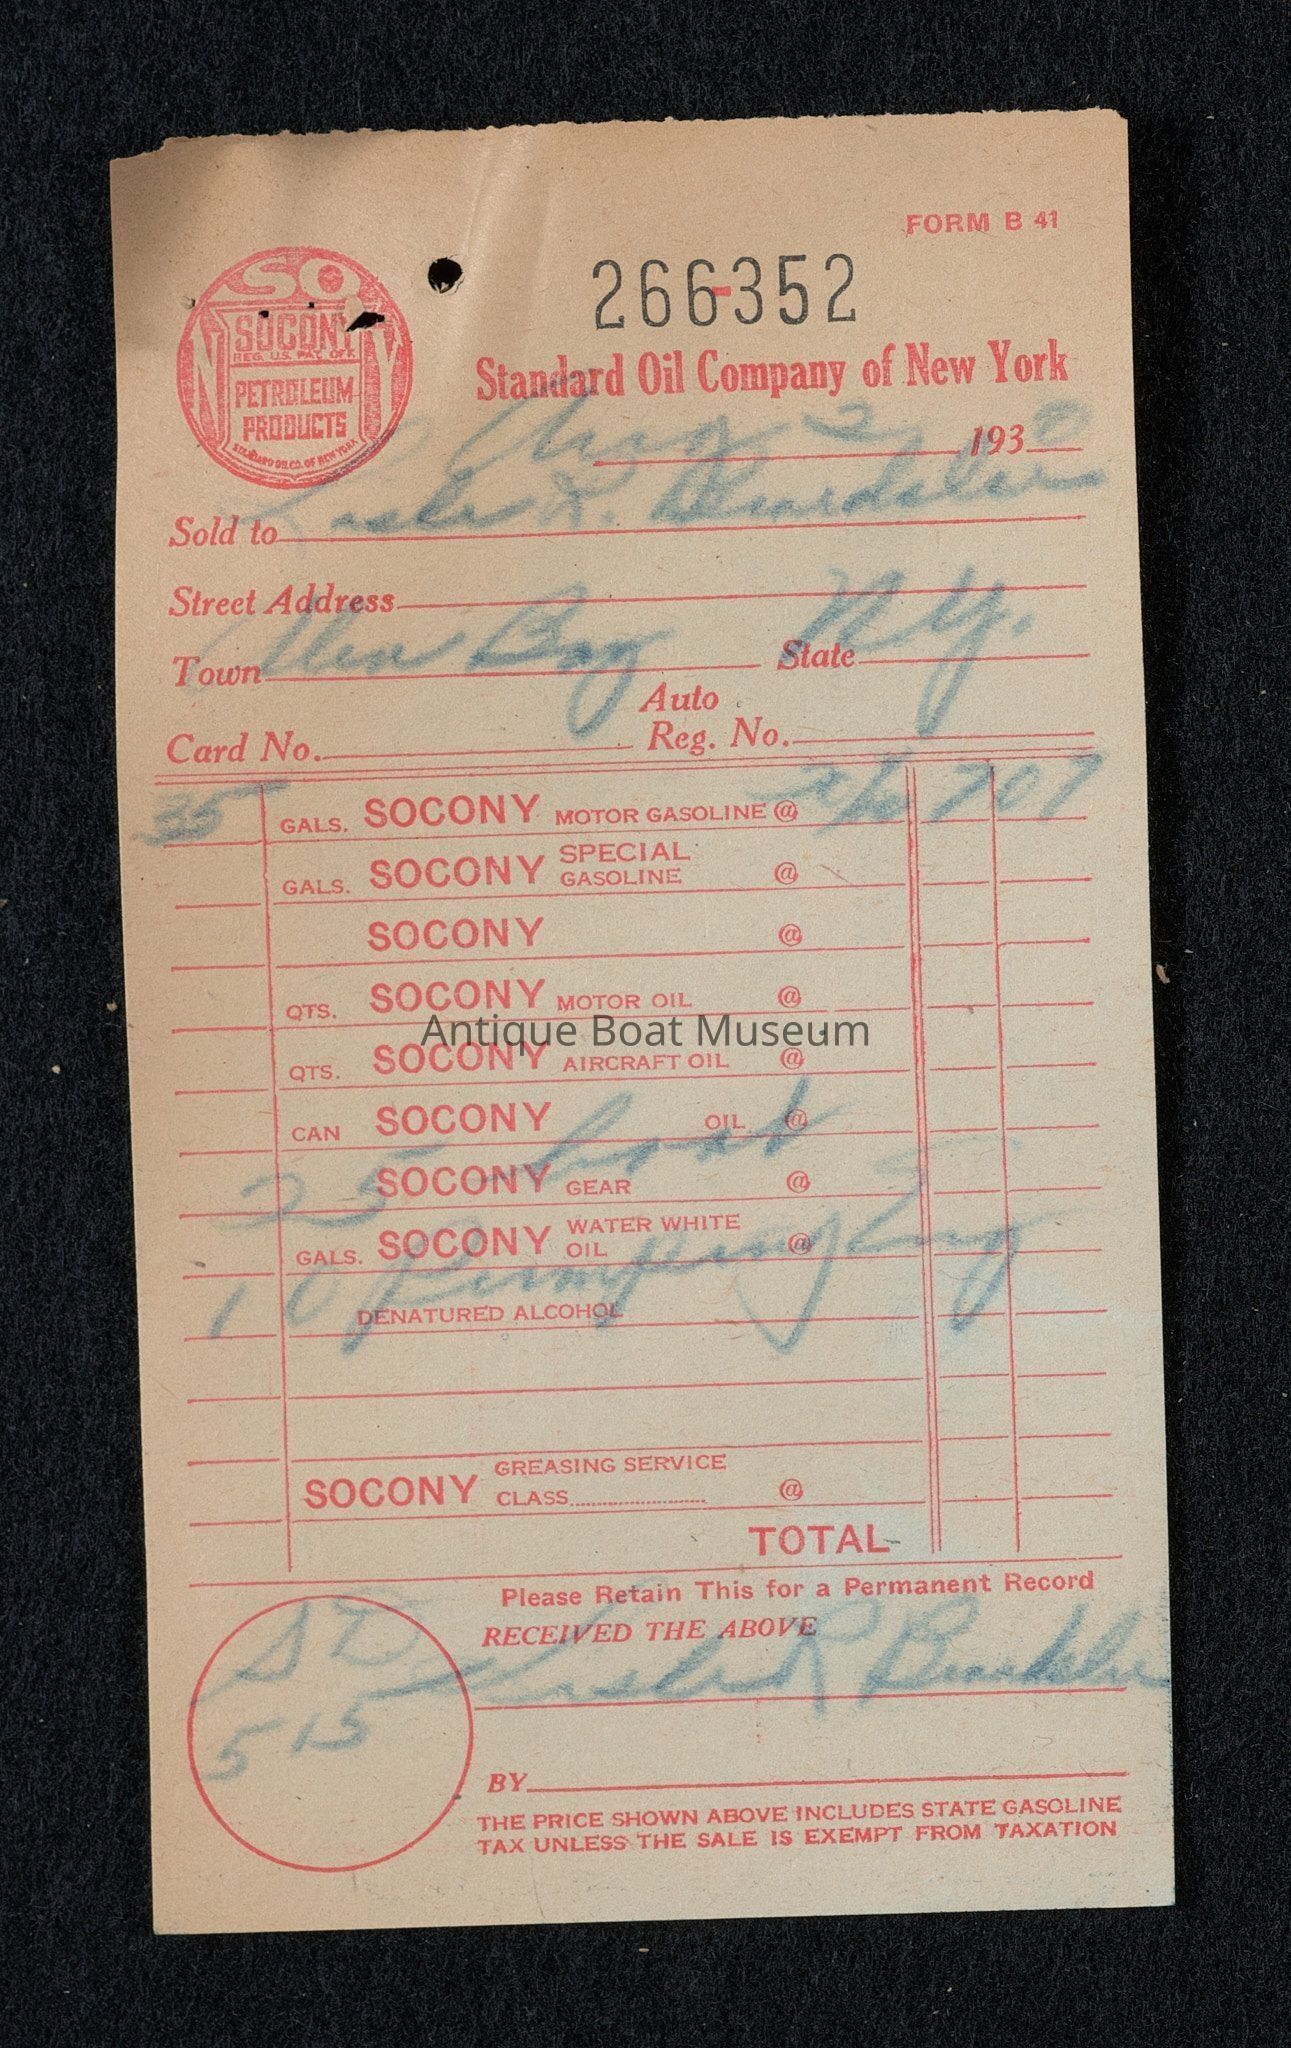 FORM B 41
266-352
SO
NY
SOCONY
REG. U.S. PAT. OFF.
PETROLEUM
PRODUCTS
STANDARD OIL CO. OF NEW YORK
Standard Oil Company of New York
Aug 2 193
Sold to R.
Street Address
Town Bay State N.Y.
Auto
Card No. Reg. No.
35 GALS. SOCONY MOTOR GASOLINE @ 7 07
GALS. SOCONY SPECIAL GASOLINE @
SOCONY @
QTS. SOCONY MOTOR OIL @
Antique Boat Museum
QTS. SOCONY AIRCRAFT OIL @
CAN SOCONY OIL @
25 boat
SOCONY GEAR @
GALS. SOCONY WATER WHITE OIL @
10 Pumping Eng
DENATURED ALCOHOL
SOCONY GREASING SERVICE
CLASS @
TOTAL
Please Retain This for a Permanent Record
RECEIVED THE ABOVE
R
515
BY
THE PRICE SHOWN ABOVE INCLUDES STATE GASOLINE
TAX UNLESS THE SALE IS EXEMPT FROM TAXATION